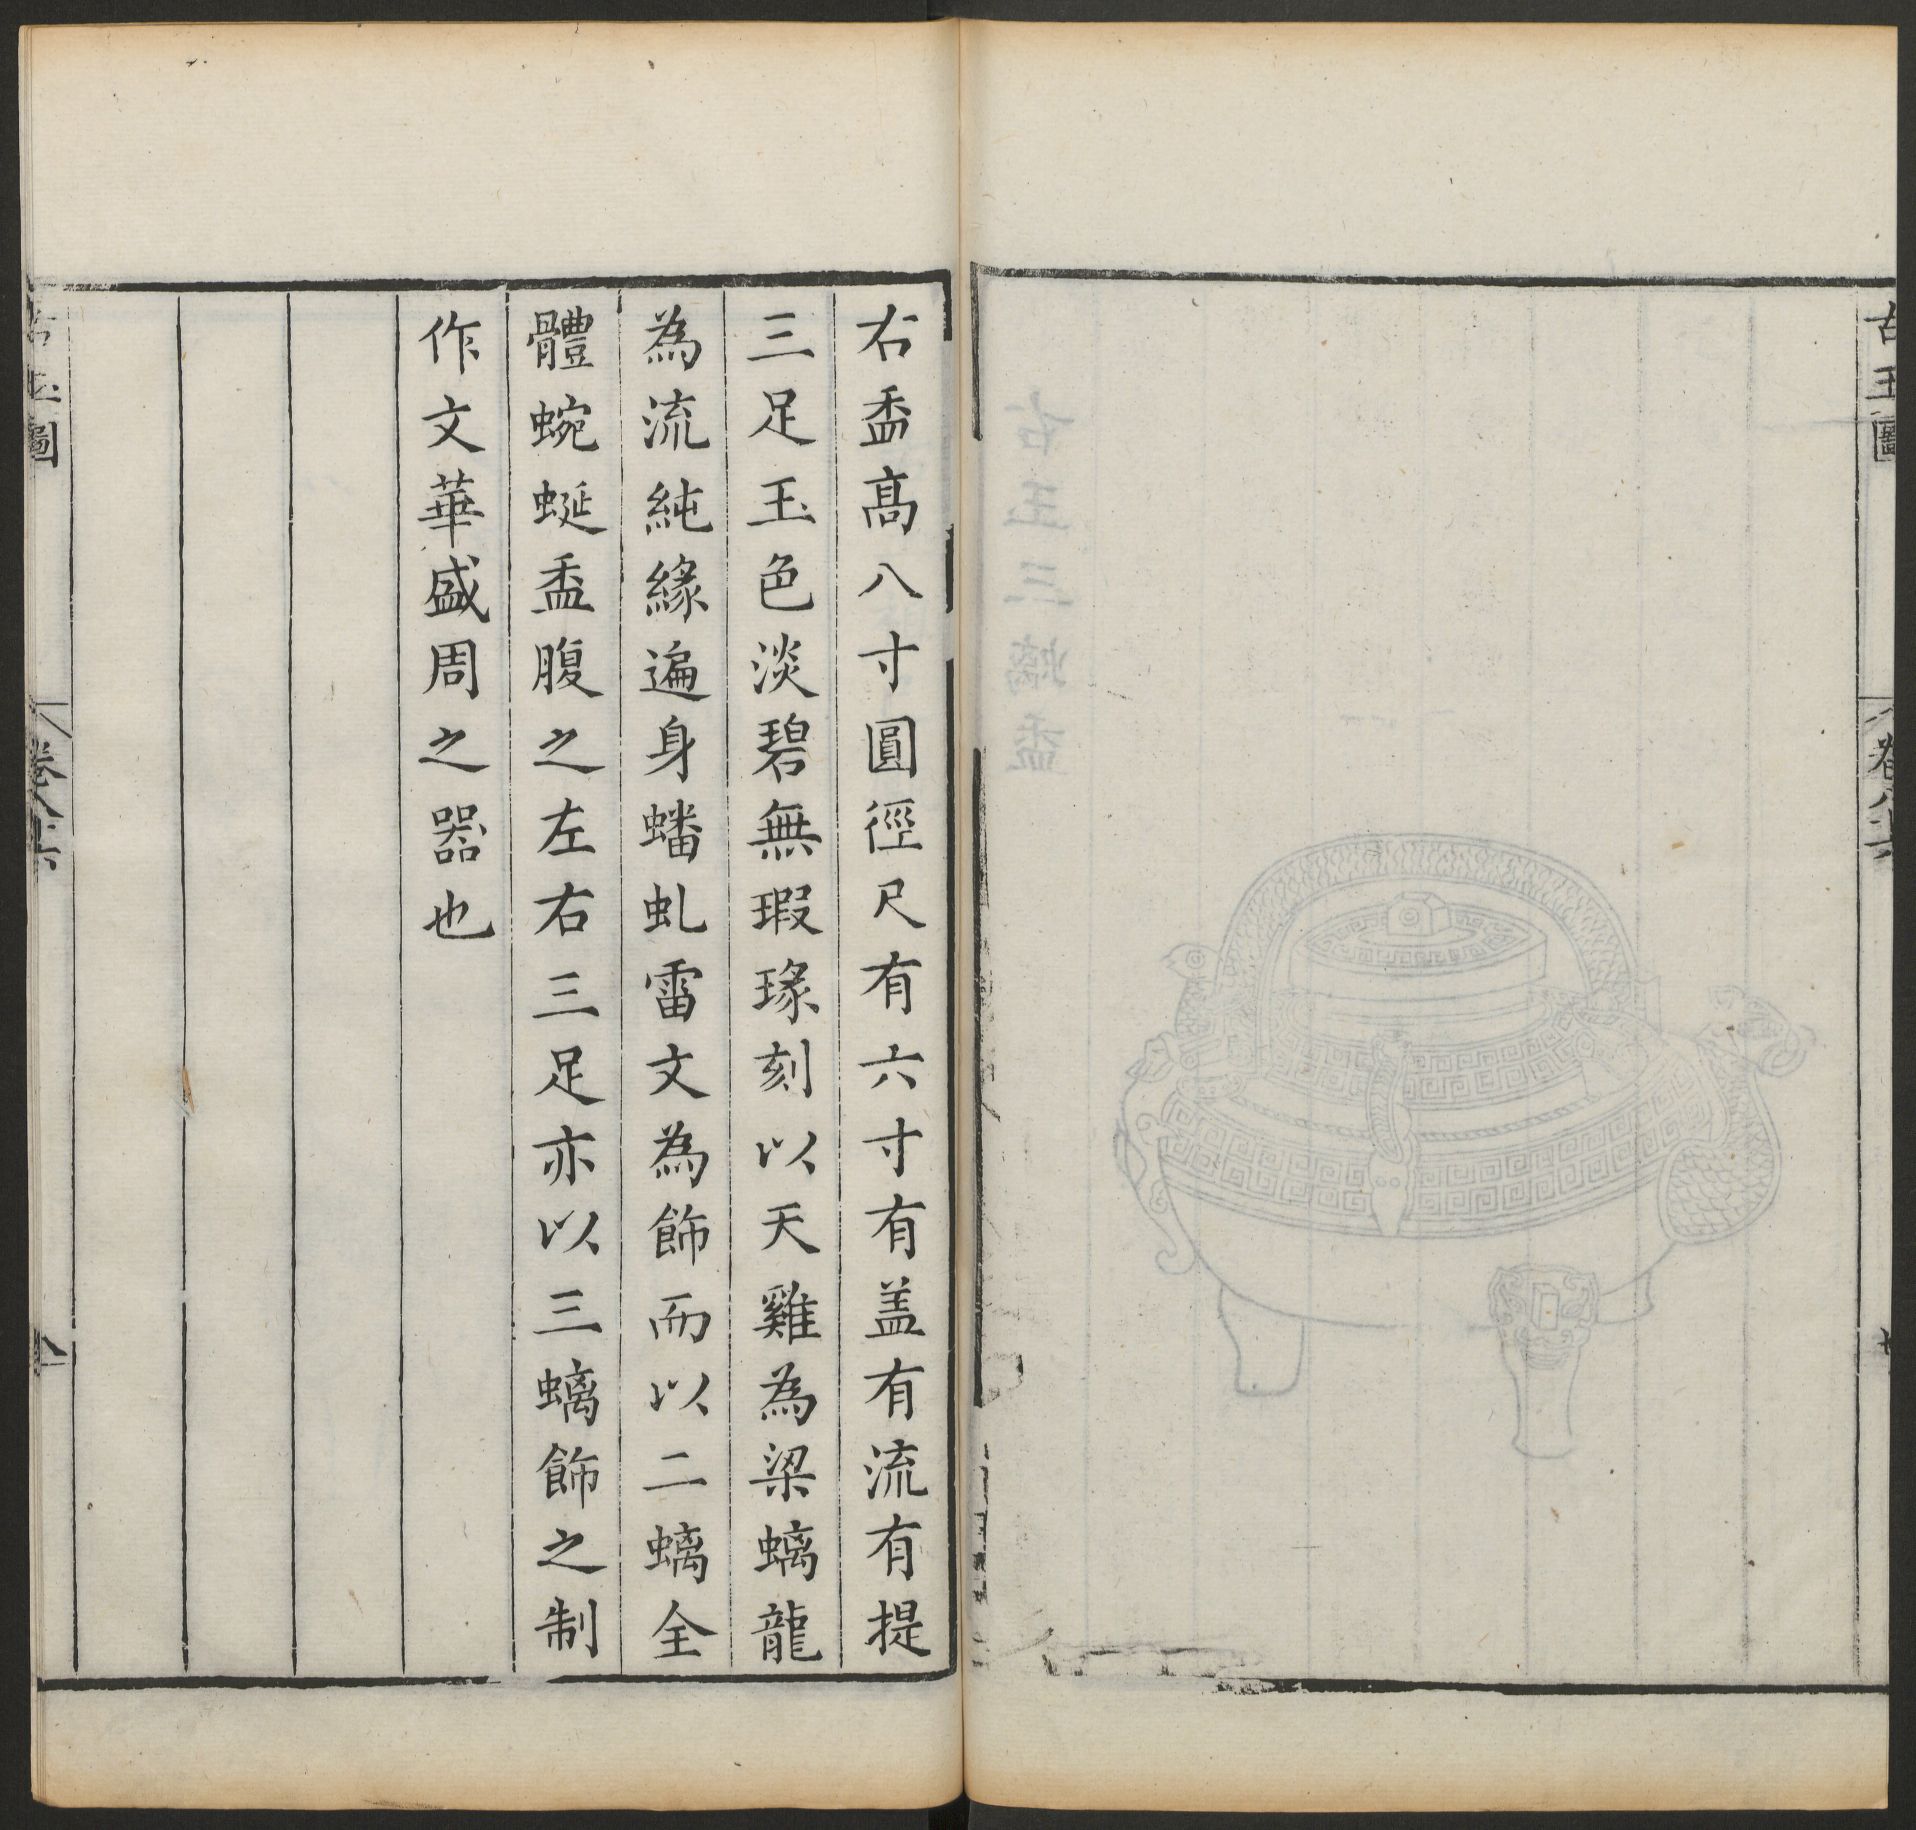 古玉圖
卷八十六
七
古玉三螭盉
右盉高八寸圓徑尺有六寸有盖有流有提
三足玉色淡碧無瑕瑑刻以天雞為梁螭龍
為流純緣遍身蟠虬雷文為飾而以二螭全
體蜿蜒盉腹之左右三足亦以三螭飾之制
作文華盛周之器也
古玉圖
卷八十六
八